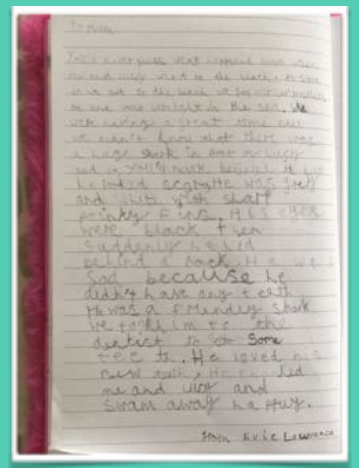 To Mum,
You'll never guess what happened when
me and Lucy went to the beach. As soon
as we got to the beach we
we went straight in the sea. We
were having a great time but
we didn't know that there was
a huge shark in front of Lucy
and
he looked was grey
and white with sharp
pointy fins. His eyes
were black then
suddenly he hid
behind a rock. He was
sad because he
didn't have any teeth.
He was a friendly shark
we took him to the
dentist to get some
teeth. He loved his
new teeth. He
me and Lucy and
swam away happy.
from Evie Lawrence